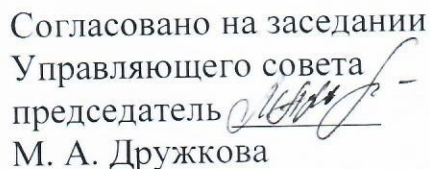 Согласовано на заседании
Управляющего совета
председатель
М. А. Дружкова